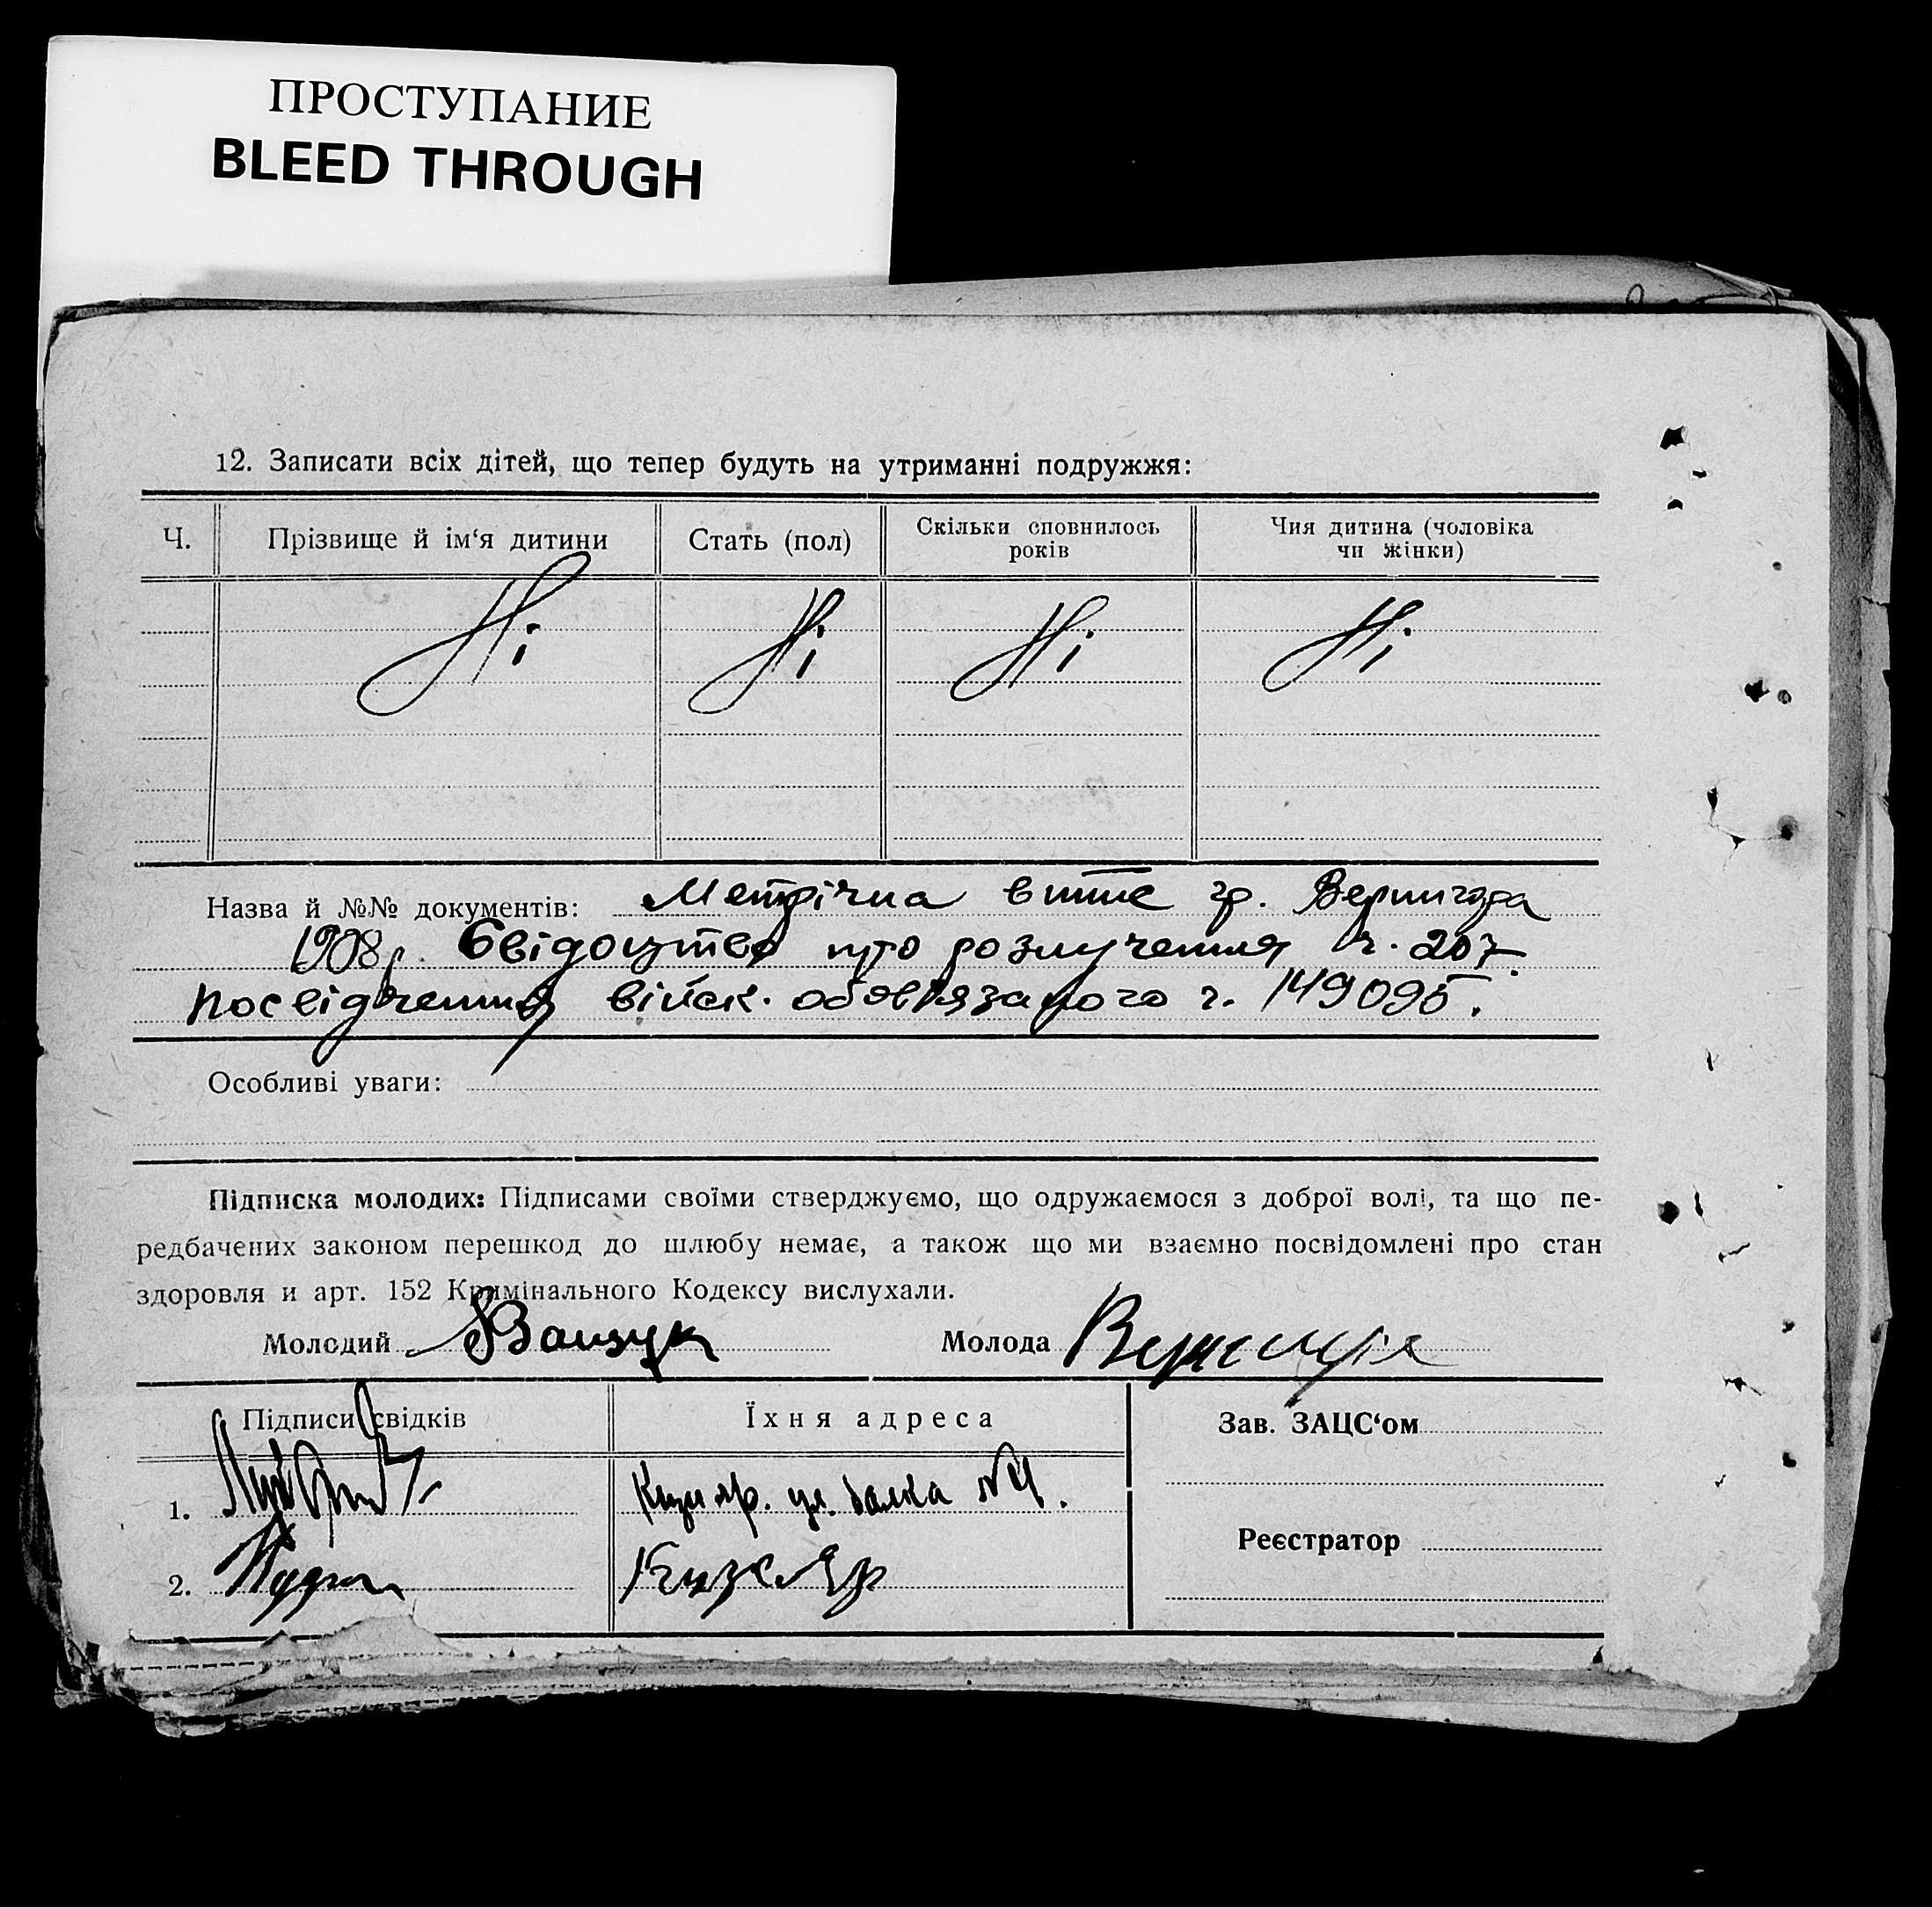 ПРОСТУПАНИЕ
BLEED THROUGH
12. Записати всіх дітей, що тепер будуть на утриманні подружжя:
Ч. Прізвище й ім‘я дитини Стать (пол) Скільки сповнилось років Чия дитина (чоловіка чи жінки)
Ні Ні Ні Ні
Назва й №№ документів: Метрічна витис гр. Вернигора
1908 р. Свідоцтво про розлучення ч. 207.
Посвідчення війск. обов'язаного ч. 149095.
Особливі уваги:
Підписка молодих: Підписами своїми стверджуємо, що одружаємося з доброї волі, та що пе-
редбачених законом перешкод до шлюбу немає, а також що ми взаємно посвідомлені про стан
здоровля и арт. 152 Кримінального Кодексу вислухали.
Молодий Ващук Молода
Підписи свідків Їхня адреса Зав. ЗАЦС‘ом
1. ул. балка №4.
Реєстратор
2. Кизляр